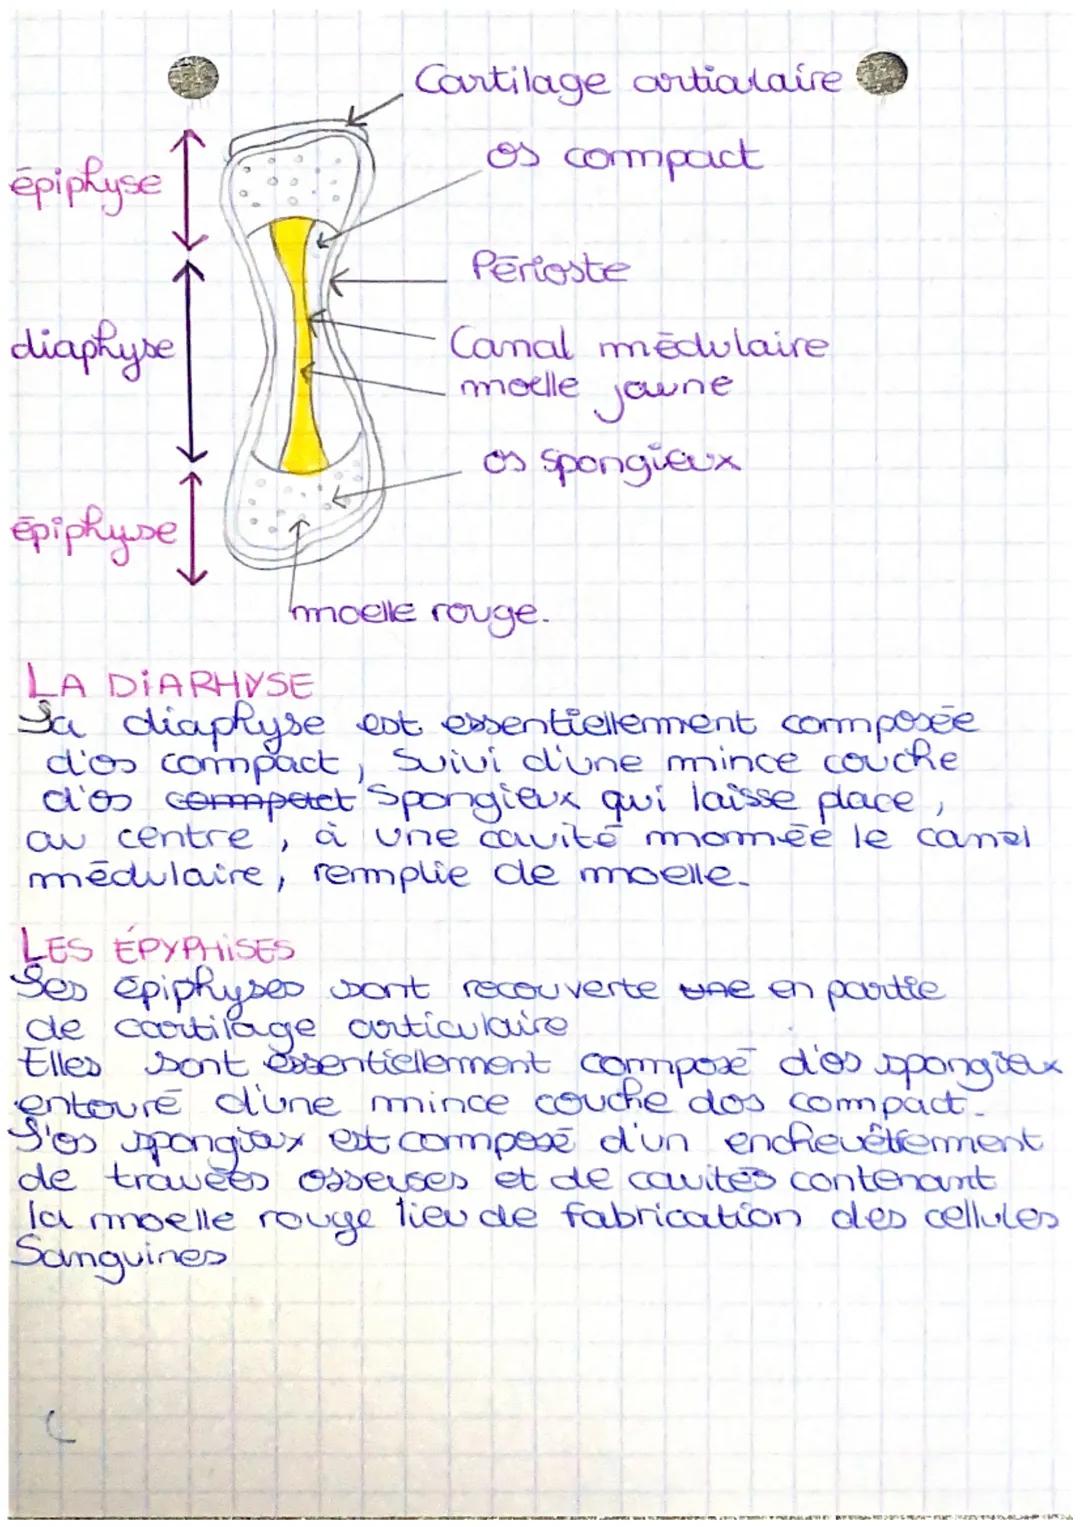 Cartilage articulaire
os compact
épiphyse
Périoste
diaphyse
Canal médulaire
moelle jaune
os spongieux
épiphyse
moelle rouge.
LA DIARHYSE
La diaphyse est essentiellement composée
d'os compact, Suivi d'une mince couche
d'os compact Spongieux qui laisse place,
au centre, à une cavité nomée le canal
médulaire, remplie de moelle.
LES ÉPYPHISES
Les épiphyses sont recouverte une en partie
de cartilage articulaire
Elles sont essentiellement composé d'os spongieux
entouré d'une mince couche dos compact.
L'os spongieux est composé d'un enchevêtrement
de travées osseuses et de cavités contenant
la moelle rouge lieu de fabrication des cellules
Sanguines